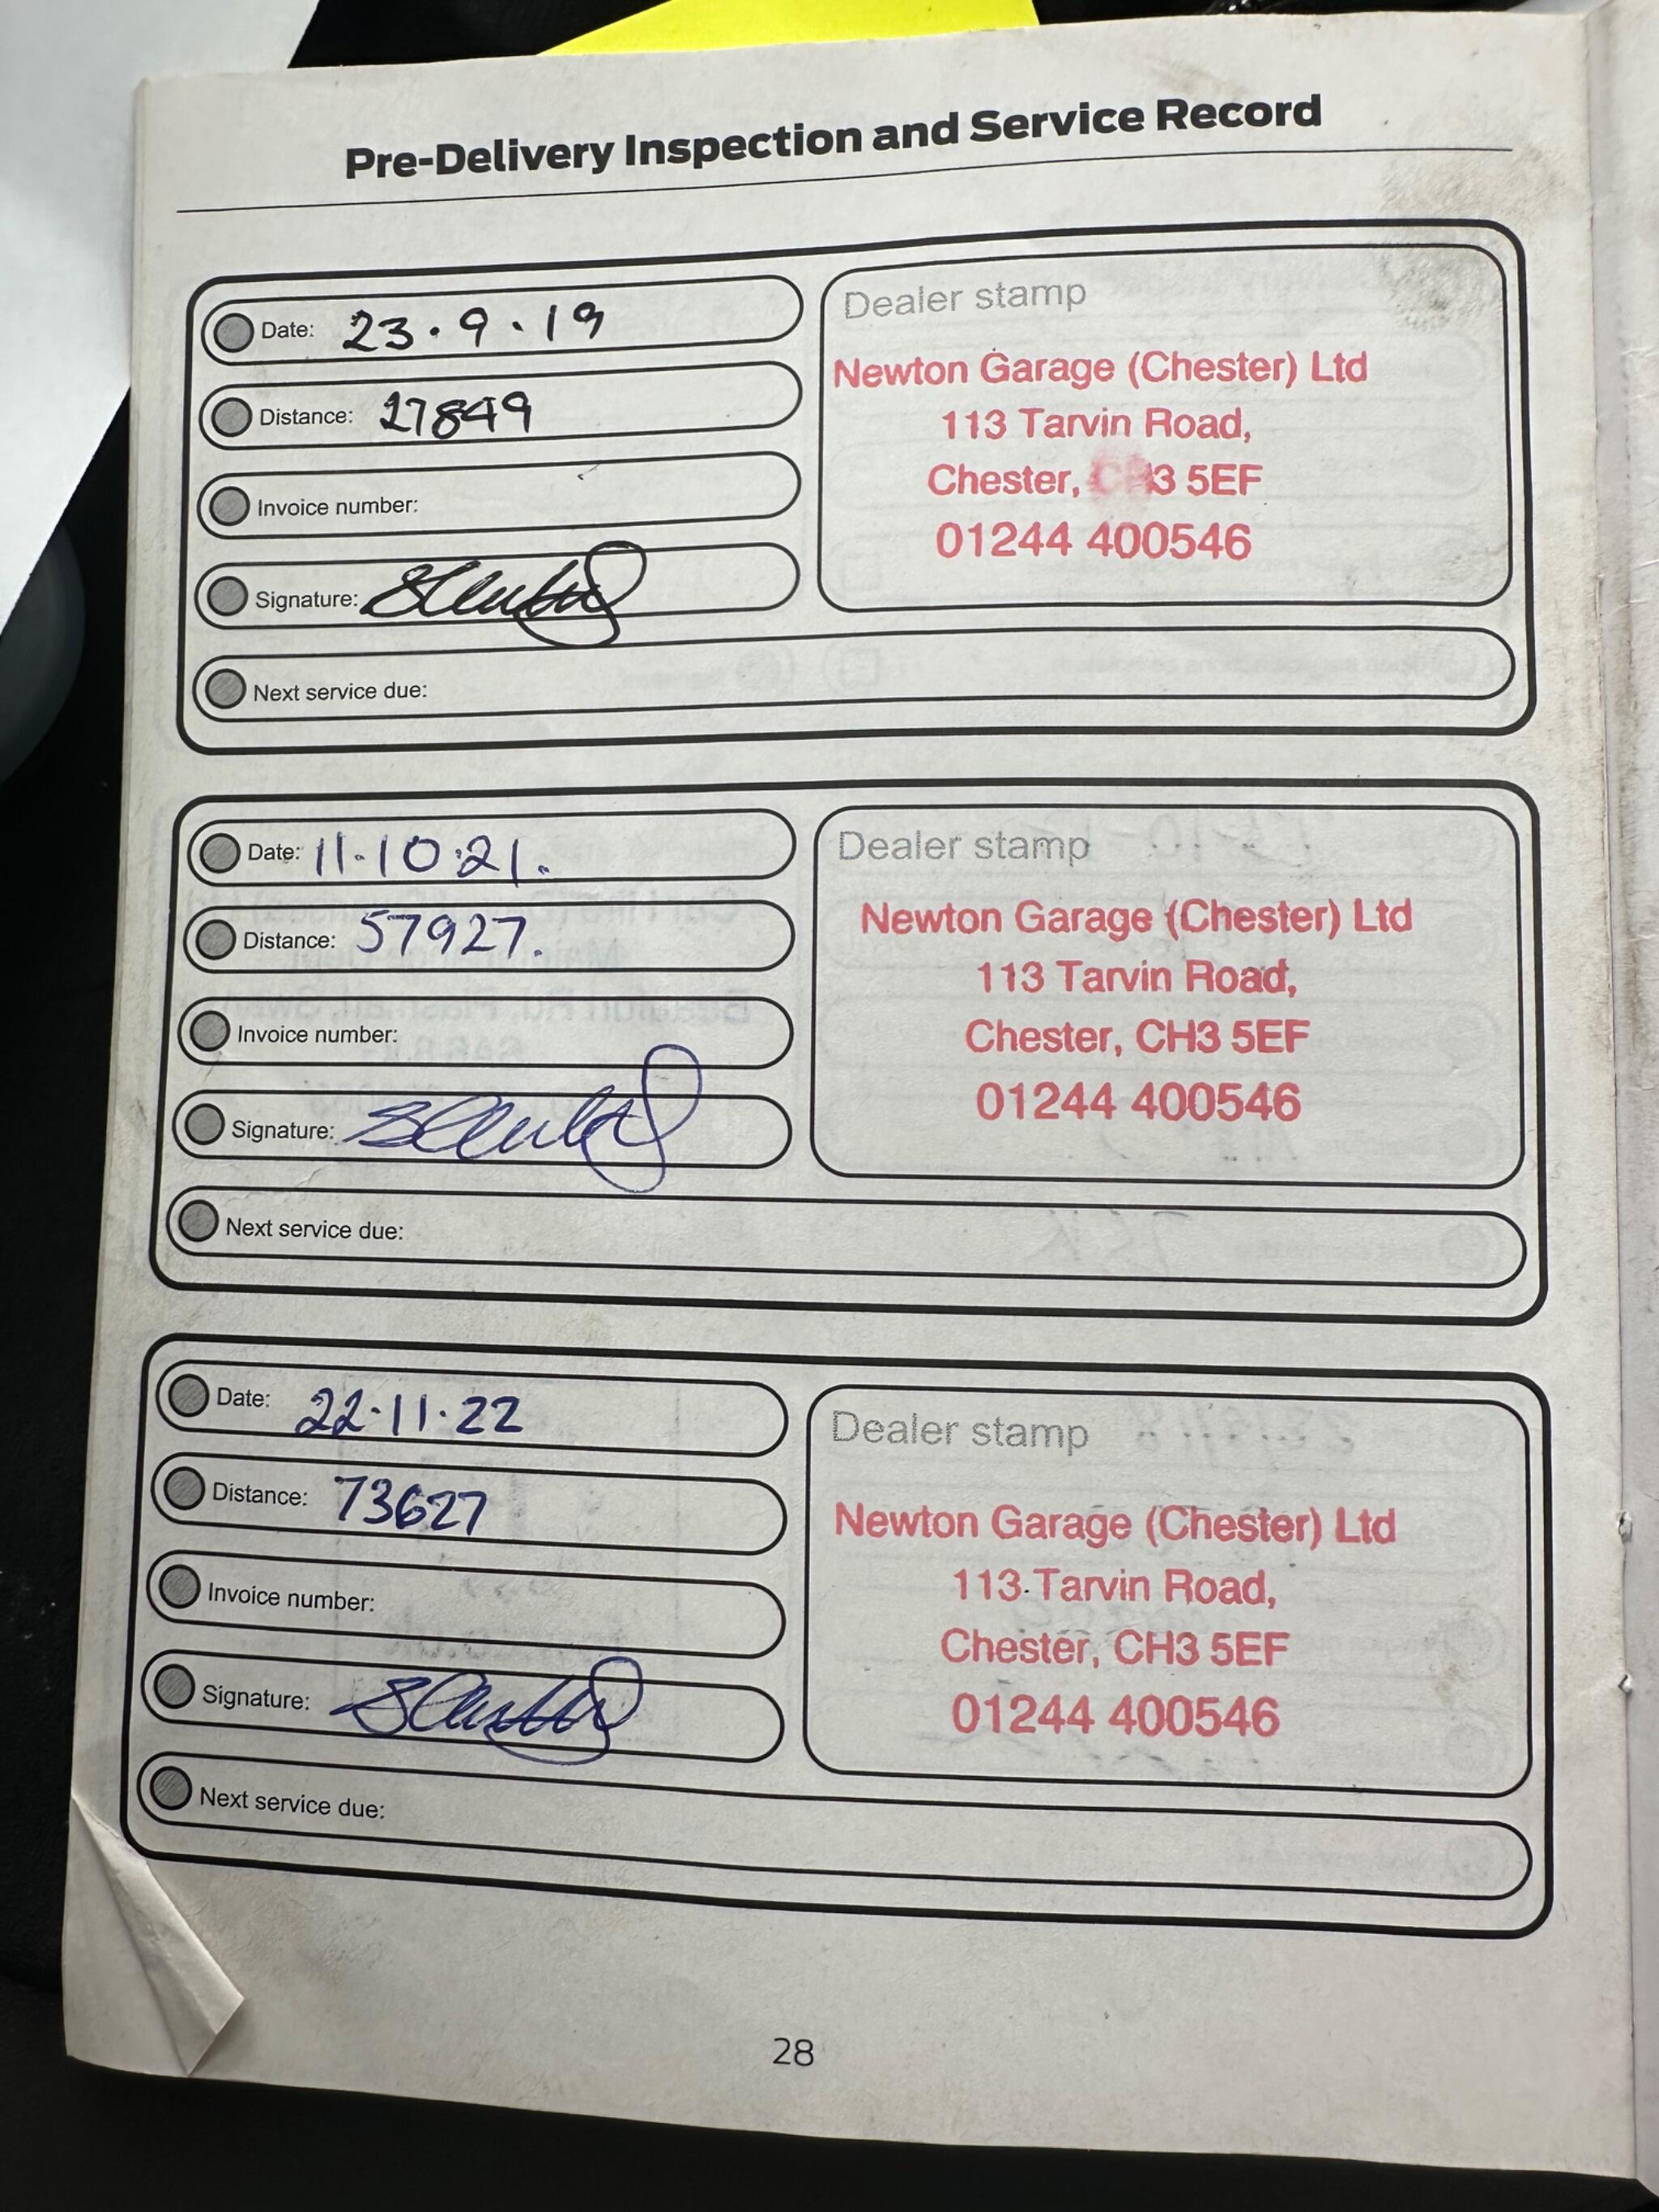 Pre-Delivery Inspection and Service Record
Date: 23.9.19
Distance: 27849
Invoice number:
Signature:
Next service due:
Dealer stamp
Newton Garage (Chester) Ltd
113 Tarvin Road,
Chester, CH3 5EF
01244 400546
Date: 11.10.21.
Distance: 57927.
Invoice number:
Signature:
Next service due:
Dealer stamp
Newton Garage (Chester) Ltd
113 Tarvin Road,
Chester, CH3 5EF
01244 400546
Date: 22.11.22
Distance: 73627
Invoice number:
Signature:
Next service due:
Dealer stamp
Newton Garage (Chester) Ltd
113 Tarvin Road,
Chester, CH3 5EF
01244 400546
28